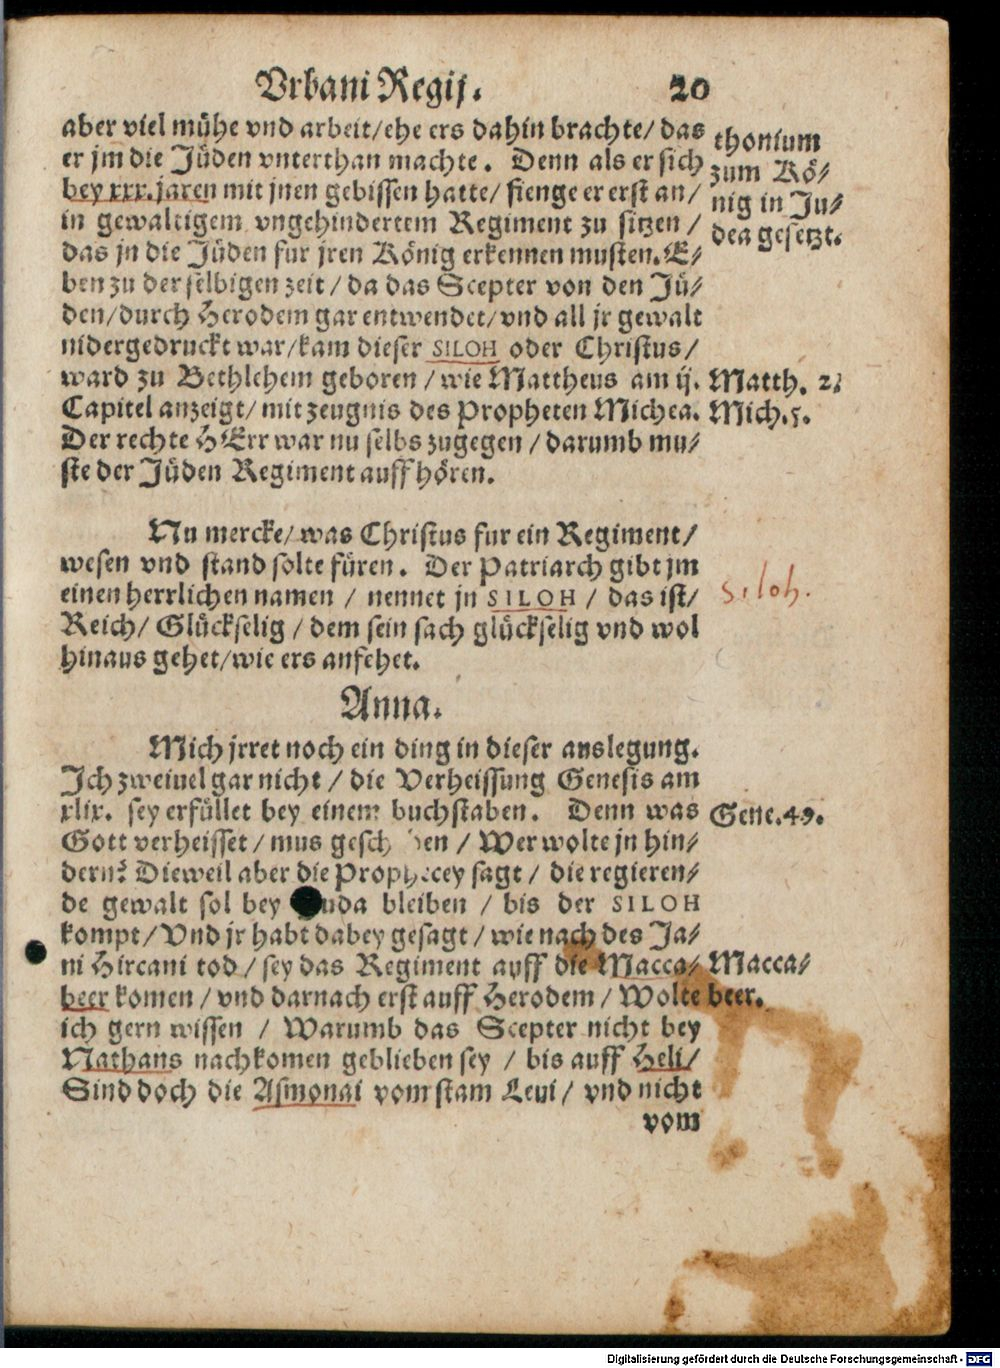 Vrbani Regij.
20
aber viel mühe vnd arbeit/ehe ers dahin brachte/das
er jm die Jüden vnterthan machte. Denn als er sich
bey xxx. jaren mit jnen gebissen hatte/ fienge er erst an/
in gewaltigem vngehindertem Regiment zu sitzen /
das jn die Jüden fur jren König erkennen musten. E⸗
ben zu der selbigen zeit / da das Scepter von den Jü⸗
den/durch Herodem gar entwendet/vnd all jr gewalt
nidergedruckt war/kam dieser SILOH oder Christus/
ward zu Bethlehem geboren / wie Mattheus am ij.
Capitel anzeigt/ mit zeugnis des Propheten Michea.
Der rechte HErr war nu selbs zugegen / darumb mu⸗
ste der Jüden Regiment auff hören.
thonium
zum Kö⸗
nig in Ju⸗
dea gesetzt.
Matth. 2.
Mich. 5.
Nu mercke/ was Christus fur ein Regiment/
wesen vnd stand solte füren. Der Patriarch gibt jm
einen herrlichen namen / nennet jn SILOH / das ist/
Reich/ Glückselig / dem sein sach glückselig vnd wol
hinaus gehet/wie ers anfehet.
siloh.
Anna.
Mich jrret noch ein ding in dieser auslegung.
Ich zweiuel gar nicht / die Verheissung Genesis am
xlix. sey erfüllet bey einem buchstaben. Denn was
Gott verheisset / mus gesch en / Wer wolte jn hin⸗
dern? Dieweil aber die Prophecey sagt / die regieren⸗
de gewalt sol bey uda bleiben / bis der SILOH
kompt/ Vnd jr habt dabey gesagt / wie nach des Ja⸗
ni Hircani tod / sey das Regiment auff die Macca⸗
beer komen / vnd darnach erst auff Herodem / Wolte
ich gern wissen / Warumb das Scepter nicht bey
Nathans nachkomen geblieben sey / bis auff Heli/
Sind doch die Asmonai vom stam Leui / vnd nicht
vom
Gene. 49.
Macca⸗
beer.
Digitalisierung gefördert durch die Deutsche Forschungsgemeinschaft - DFG